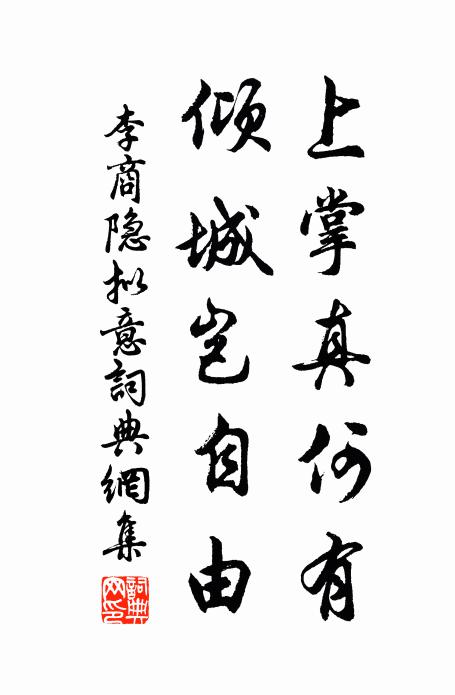 上掌真何有
傾城豈自由
李商隐拟意詞典網集
詞典網印